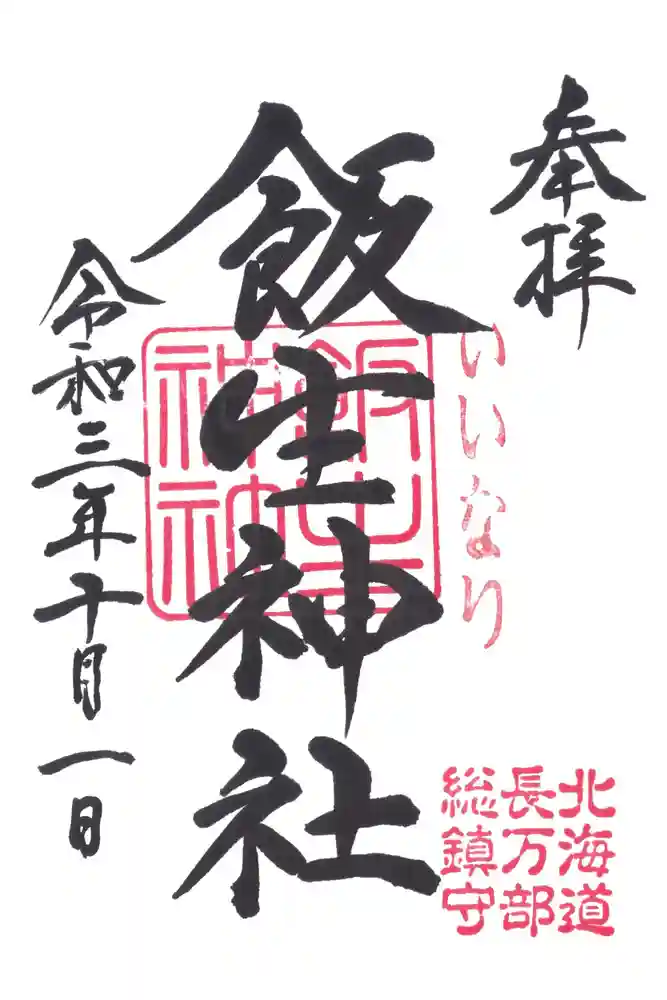 奉拝
いいなり
飯生神社
飯生神社
令和三年十月一日
北海道
長万部
総鎮守